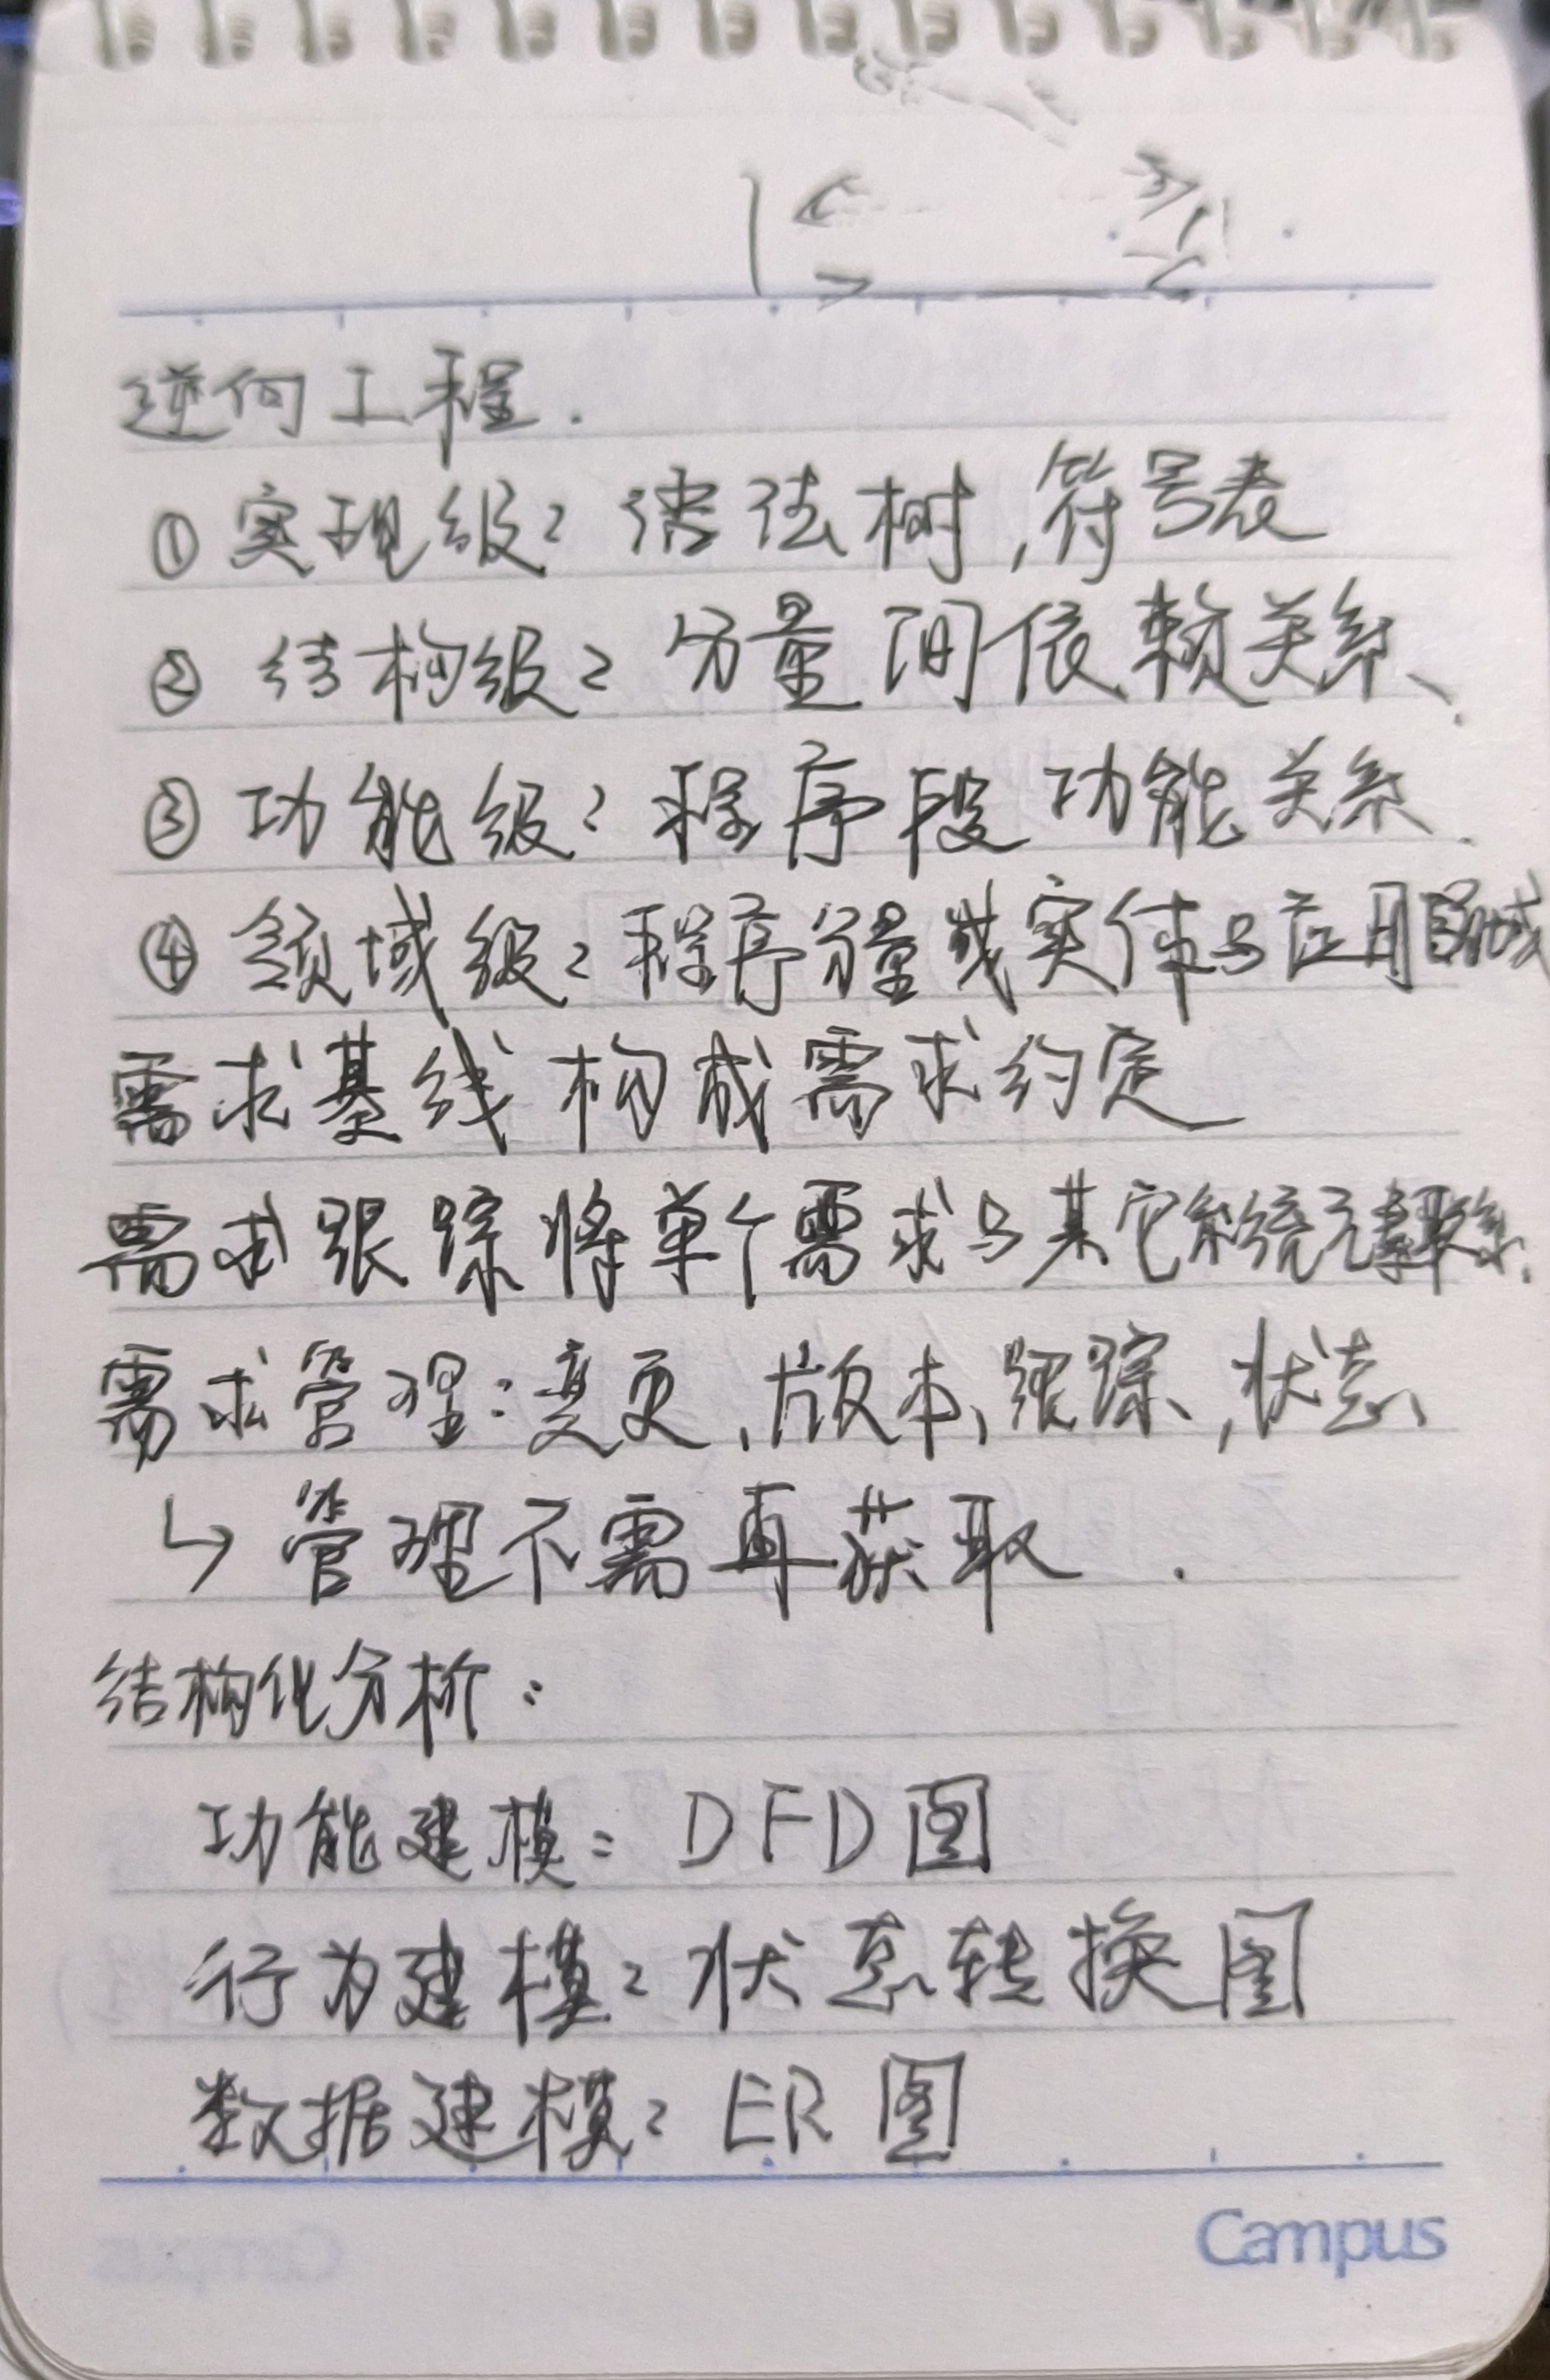 逆向工程.
①实现级：语法树，符号表
②结构级：分量间依赖关系、
③功能级：程序段功能关系.
④领域级：程序分量或实体与应用领域
需求基线构成需求约定
需求跟踪将单个需求与其它系统元素联系.
需求管理：变更、版本、跟踪、，状态
↳管理不需再获取.
结构化分析：
功能建模：DFD图
行为建模：状态转换图
数据建模：ER图
Campus